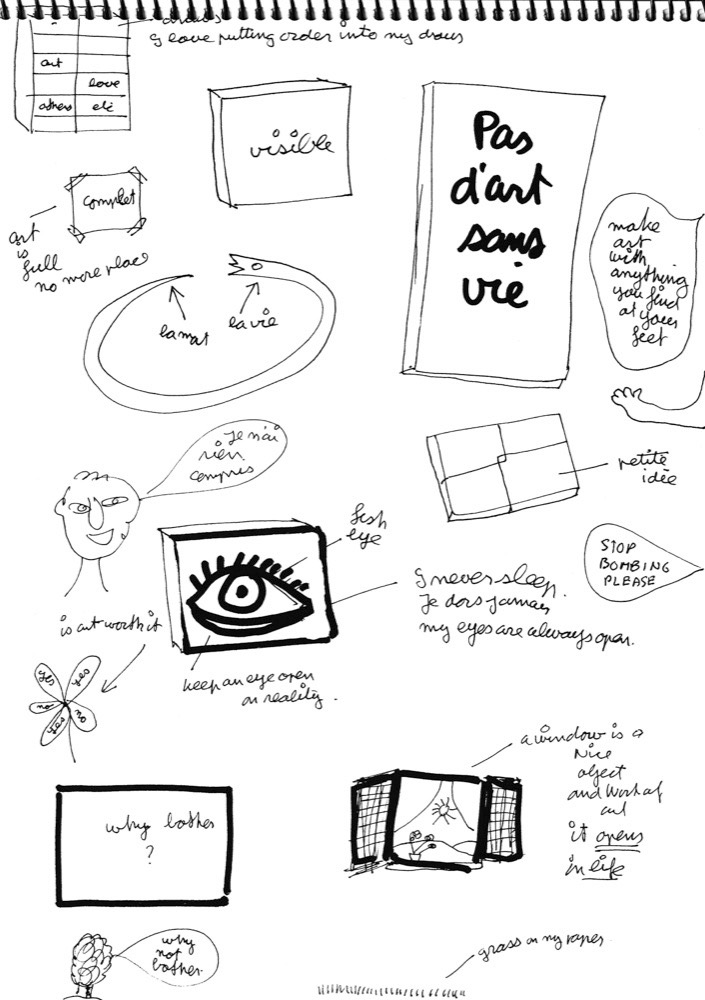 draws
I love putting order into my draws
art
love
others
etc
visible
Pas
d'art
sans
vie
complet
art
is
full
no more place
make
art
with
anything
you find
at your
feet
la mort
la vie
Je n'ai
rien
compris
petite
idèe
fish
eye
STOP
BOMBING
PLEASE
I never sleep.
Je dors jamais
my eyes are always open.
is art worth it
keep an eye open
on reality.
yes
yes
no
no
yes
a window is a
Nice
object
and Work of
art
it opens
in life
why bother
?
why
not
bother.
grass on my paper